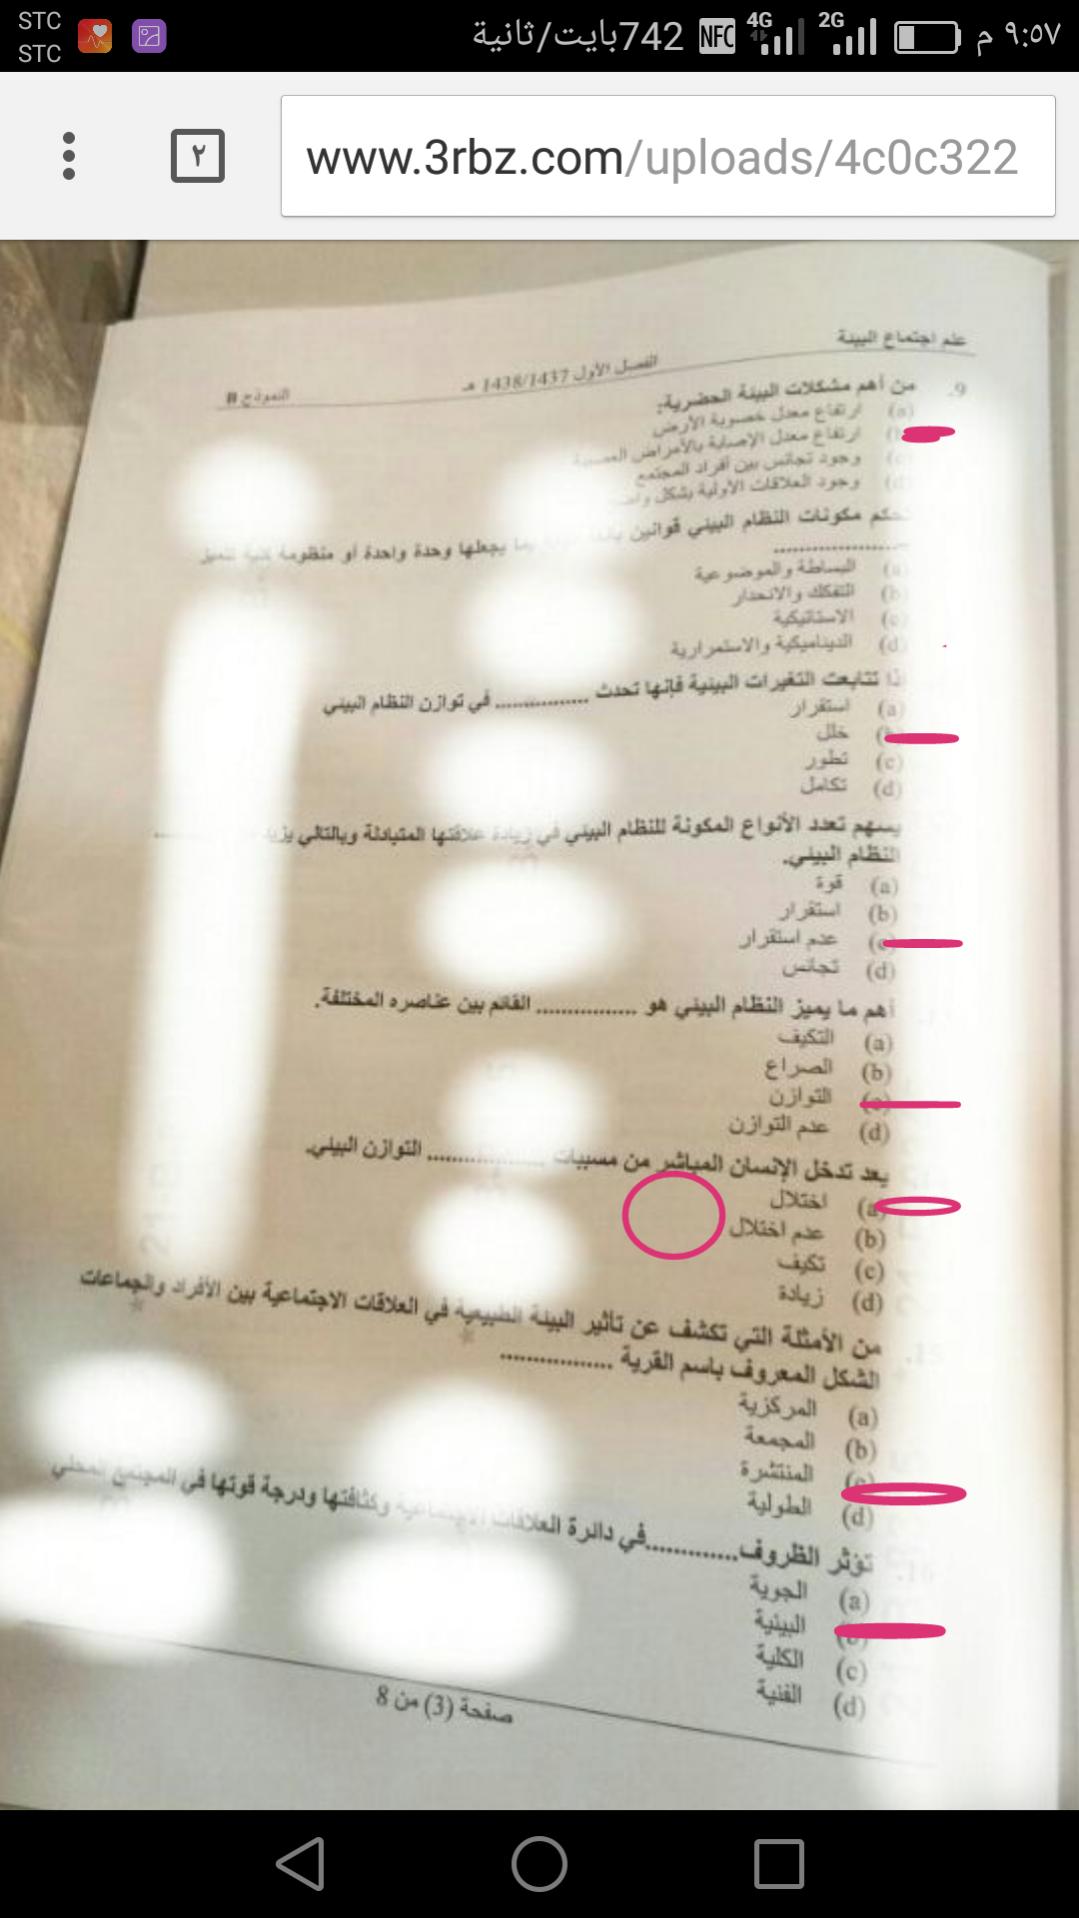 STC
STC
742بايت/ثانية NFC 4G 2G ٩:٥٧ م
٢
www.3rbz.com/uploads/4c0c322
علم اجتماع البيئة
الفصل الأول 1438/1437 هـ
النموذج B
9. من أهم مشكلات البيئة الحضرية:
(a) ارتفاع معدل خصوبة الأرض
ارتفاع معدل الإصابة بالأمراض العصبية
(c) وجود تجانس بين أفراد المجتمع
(d) وجود العلاقات الأولية بشكل
تحكم مكونات النظام البيئي قوانين بما يجعلها وحدة واحدة أو منظومة كلية تتميز
....................
(a) البساطة والموضوعية
(b) التفكك والانحدار
(c) الاستاتيكية
(d) الديناميكية والاستمرارية
إذا تتابعت التغيرات البيئية فإنها تحدث ............... في توازن النظام البيئي
(a) استقرار
خلل
(c) تطور
(d) تكامل
يسهم تعدد الأنواع المكونة للنظام البيئي في زيادة علاقتها المتبادلة وبالتالي يزيد
النظام البيئي.
(a) قوة
(b) استقرار
(c) عدم استقرار
(d) تجانس
أهم ما يميز النظام البيئي هو ................ القائم بين عناصره المختلفة.
(a) التكيف
(b) الصراع
(c) التوازن
(d) عدم التوازن
يعد تدخل الإنسان المباشر من مسببات .................. التوازن البيئي.
(a) اختلال
(b) عدم اختلال
(c) تكيف
(d) زيادة
15. من الأمثلة التي تكشف عن تأثير البيئة الطبيعية في العلاقات الاجتماعية بين الأفراد والجماعات
الشكل المعروف باسم القرية .................
(a) المركزية
(b) المجمعة
(c) المنتشرة
(d) الطولية
16. تؤثر الظروف..............في دائرة العلاقات الاجتماعية وكثافتها ودرجة قوتها في المجتمع المحلي
(a) الجوية
(b) البيئية
(c) الكلية
(d) الفنية
صفحة (3) من 8